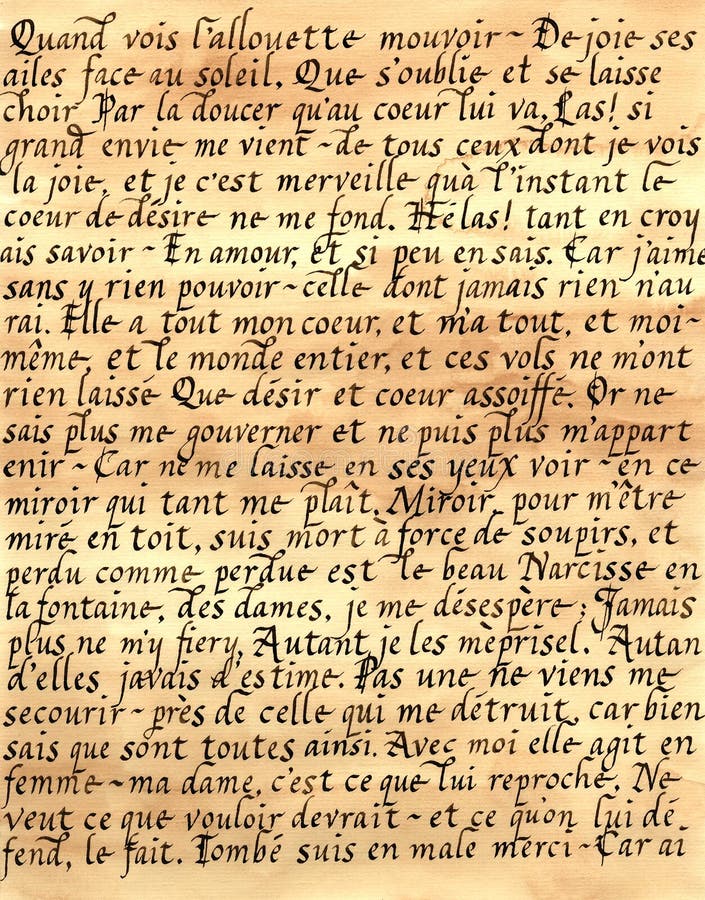 Quand vois l'allouette mouvoir ~ De joie ses
ailes face au soleil, Que s'oublie et se laisse
choir Par la doucer qu'au coeur lui va, Las! si
grand envie me vient ~ de tous ceux dont je vois
la joie, et je c'est merveille qu'à l'instant le
coeur de désire ne me fond. Hélas! tant en croy
ais savoir ~ En amour, et si peu en sais. Car j'aime
sans y rien pouvoir ~ celle dont jamais rien n'au
rai. Elle a tout mon coeur, et m'a tout, et moi-
même, et le monde entier, et ces vols ne m'ont
rien laissé Que désir et coeur assoiffé. Or ne
sais plus me gouverner et ne puis plus m'appart
enir ~ Car ne me laisse en ses yeux voir ~ en ce
miroir qui tant me plaît. Miroir, pour m'être
miré en toit, suis mort à force de soupirs, et
perdu comme perdue est le beau Narcisse en
la fontaine, des dames, je me désespère; Jamais
plus ne m'y fiery, Autant je les mèprisel. Autan
d'elles javais d'estime. Pas une ne viens me
secourir ~ près de celle qui me détruit, car bien
sais que sont toutes ainsi. Avec moi elle agit en
femme ~ ma dame, c'est ce que lui reproche, Ne
veut ce que vouloir devrait ~ et ce qu'on lui dé
fend, le fait. Tombé suis en male merci ~ Car ai